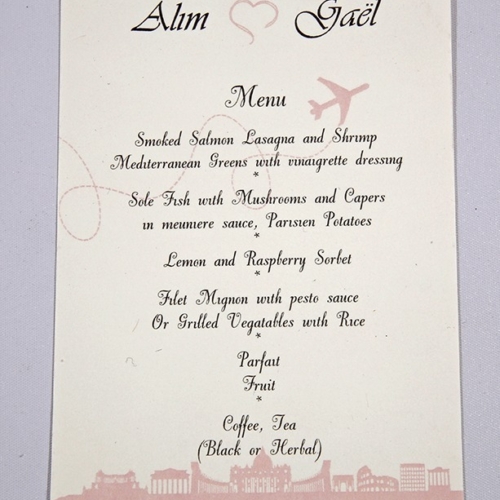 Alım Gaël
Menu
Smoked Salmon Lasagna and Shrımp
Medıterranean Greens wıth vınaıgrette dressıng
*
Sole Fısh wıth Mushrooms and Capers
ın meunıere sauce, Parısıen Potatoes
*
Lemon and Raspberry Sorbet
*
Fılet Mıgnon wıth pesto sauce
Or Grılled Vegatables wıth Rıce
*
Parfaıt
Fruıt
*
Coffee, Tea
(Black or Herbal)